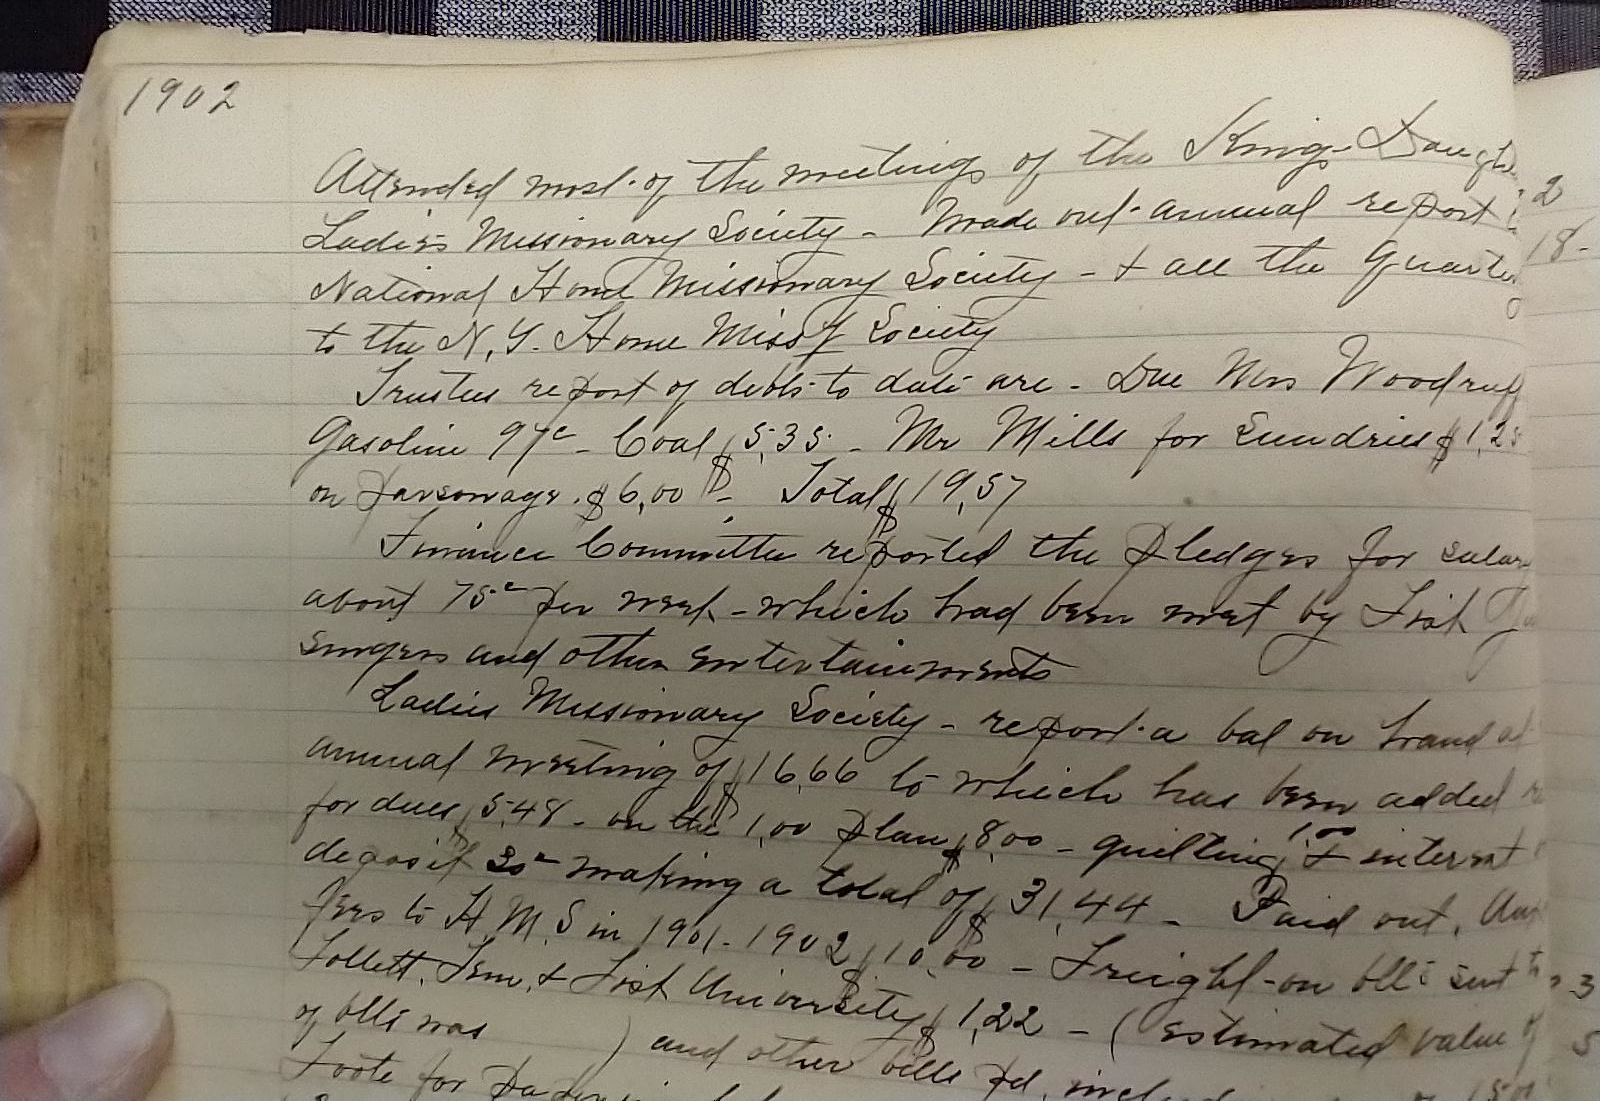 1902
Attended most of the meetings of the Kings Daugh
Ladies Missionary Society - Made out annual report
National Home Missionary Society - & all the Quarte
to the N.Y. Home Miss'y Society
Trustees report of debts to date are - Due Mrs Woodruff
Gasoline 97c - Coal $5.35 - Mr Mills for Sundries $1,25
on parsonage. $6,00 - Total $19,57
Finance Committee reported the pledges for salar
about 75c per week - which had been met by Fisk
Singers and other entertainments
Ladies Missionary Society - report a bal on hand at
annual meeting of $16,66 to which has been added
for dues $5.48 - on the 1,00 plan $8,00 - quilting 1,00 & interest
deposit 30c making a total of $31,44 - Paid out,
to H. M. S in 1901-1902 $10,00 - Freight on blls sent to
Follett, Tenn, & Fisk University $1,22 - (estimated value of
of blls was ) and other bills pd,
Foote for